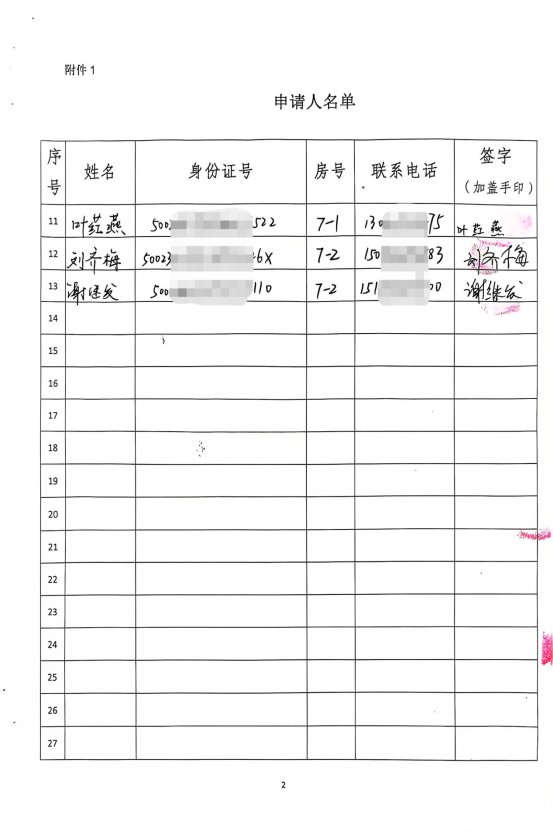 附件 1
申请人名单
序号 姓名 身份证号 房号 联系电话 签字（加盖手印）
11 叶红燕 500 522 7-1 130 75 叶红燕
12 刘齐梅 50023 6X 7-2 150 83 刘齐梅
13 谢继发 500 110 7-2 151 00 谢继发
14
15
16
17
18
19
20
21
22
23
24
25
26
27
2